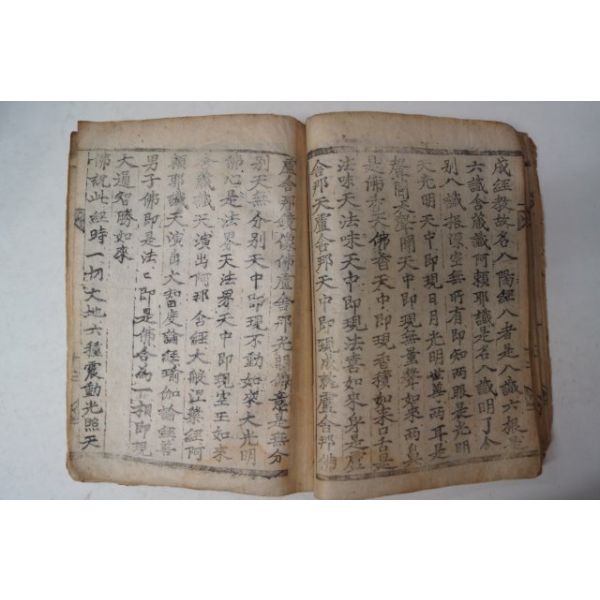 成經教故名八陽經八者是八識六根是
六識含藏識阿賴耶識是名八識明了分
別八識根源空無所有即知兩眼是光明
天光明天中即現日月光明世尊兩耳是
聲聞天聲聞天中即現無量聲如來兩鼻
是佛香天佛香天中即現香積如來口舌是
法味天法味天中即現法喜如來身是盧
舍那天盧舍那天中即現成就盧舍那佛
盧舍那鏡像佛盧舍那光明佛意是無分
別天無分別天中即現不動如來大光明
佛心是法界天法界天中即現空王如來
含藏識天演出阿那含經大般涅槃經阿
賴耶識天演出大智度論經瑜伽論經善
男子佛即是法〻即是佛合為一相即現
大通智勝如來
佛說此經時一切大地六種震動光照天